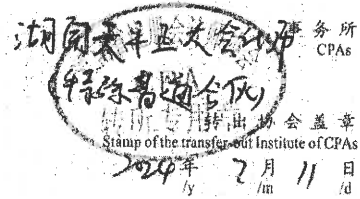 湖南天平正大会计师事务所
CPAs
(特殊普通合伙)
转出协会盖章
Stamp of the transfer-out Institute of CPAs
2024年 月11日
/y /m /d